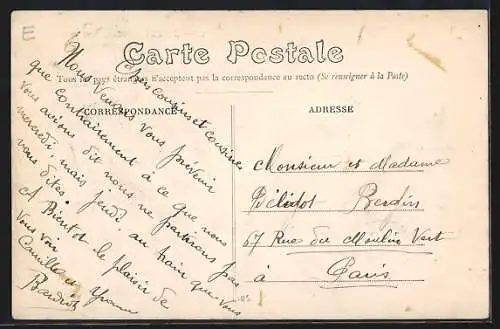 E
Carte Postale
Tous les pays étrangers n'acceptent pas la correspondance au recto (Se renseigner à la Poste)
CORRESPONDANCE
ADRESSE
Chers cousins et cousines
Nous venons vous prévenir
que contrairement à ce que nous
vous avions dit nous ne partirons pas
mercredi, mais jeudi, au train que vous
vous dites.
A Bientôt le plaisir de
vous voir
Camille et Yvonne
Monsieur et Madame
67 Rue du Moulin Vert
à Paris